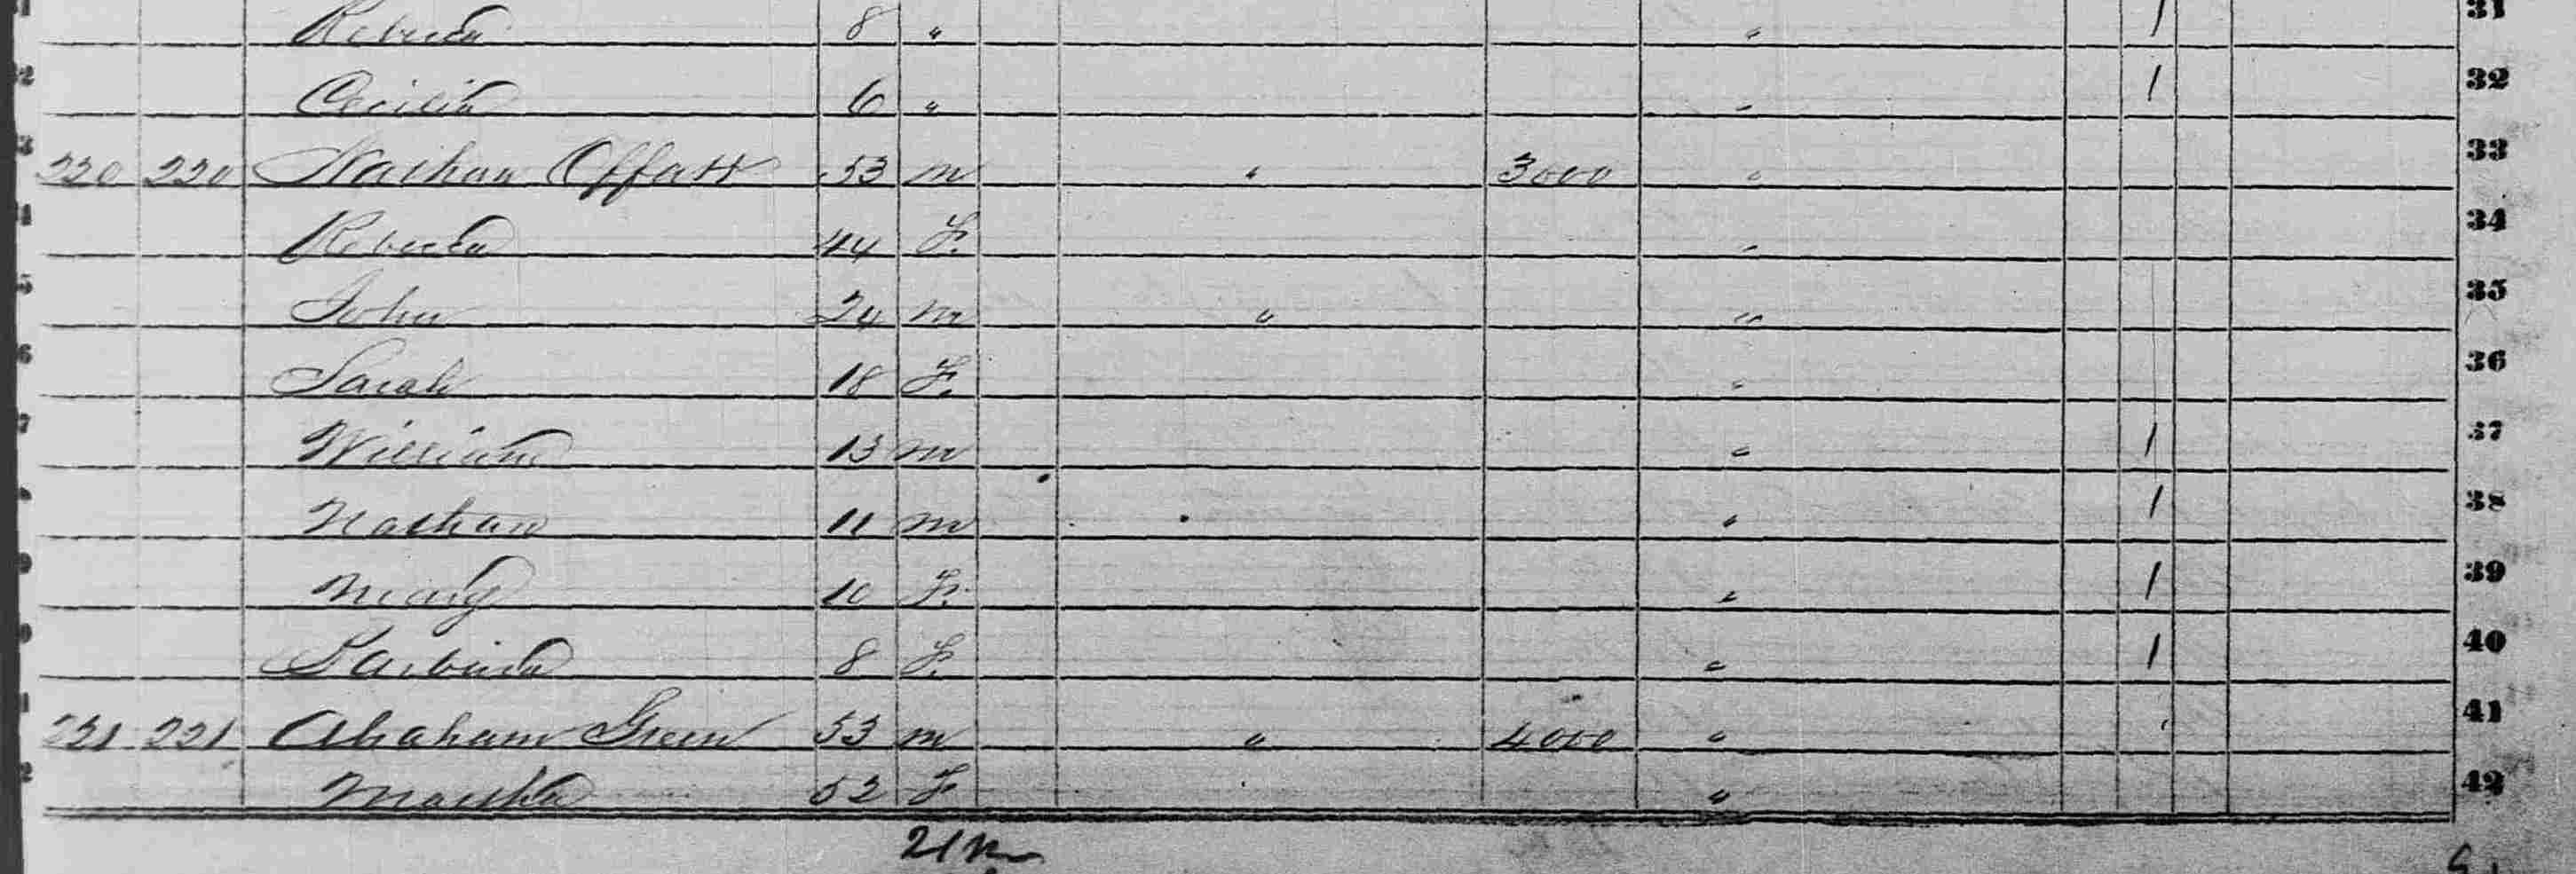 Rebecca 8 " " 1 31
2 Cecilia 6 " " 1 32
3 220 220 Nathan Offatt 53 m " 3000 " 33
4 Rebecca 44 F. " 34
5 John 24 m " " 35
6 Sarah 18 F. " 36
7 William 13 m " 1 37
Nathan 11 m " 1 38
9 Mary 10 F. " 1 39
8 F. " 1 40
221 221 Abraham Green 53 m " 4000 " 41
2 Martha 52 F " 42
21 m